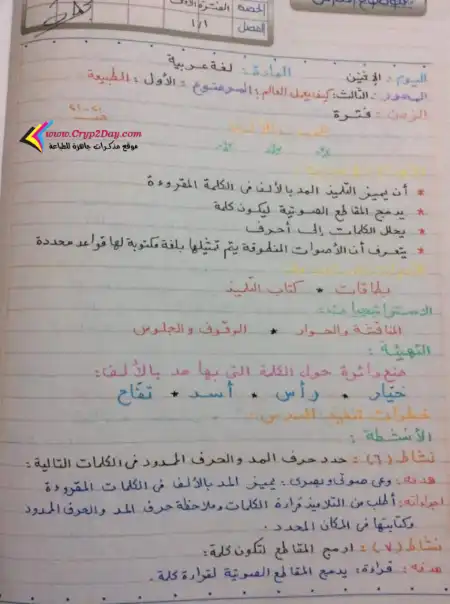 الحصة الفترة الأولى
الفصل ١/١
اليوم: الإثنين المادة: لغة عربية
المحور: الثالث: كيف يعمل العالم؟ الموضوع: الأول: الطبيعة
الزمن: فترة
www.Cryp2Day.com
موقع مذكرات جاهزة للطباعة
* أن يميز التلميذ المد بالألف فى الكلمة المقروءة
* يدمج المقاطع الصوتية ليكون كلمة
* يحلل الكلمات إلى أحرف
* يتعرف أن الأصوات المنطوقة يتم تمثيلها بلغة مكتوبة لها قواعد محددة
بطاقات * كتاب التلميذ
الاستراتيجيات:
المناقشة والحوار * الوقوف والجلوس
التهيئة:
ضع دائرة حول الكلمة التى بها مد بالألف:
خيار * رأس * أسد * تفاح
خطوات تنفيذ الدرس:
الأنشطة:
نشاط (٦): حدد حرف المد والحرف الممدود فى الكلمات التالية:
هدفه: وعى صوتى وبصرى: يميز المد بالألف فى الكلمات المقروءة
إجراءاته: أطلب من التلاميذ قراءة الكلمات وملاحظة حرف المد والحرف الممدود
وكتابتها فى المكان المحدد.
نشاط (٧): ادمج المقاطع لتكون كلمة:
هدفه: قراءة: يدمج المقاطع الصوتية لقراءة كلمة.